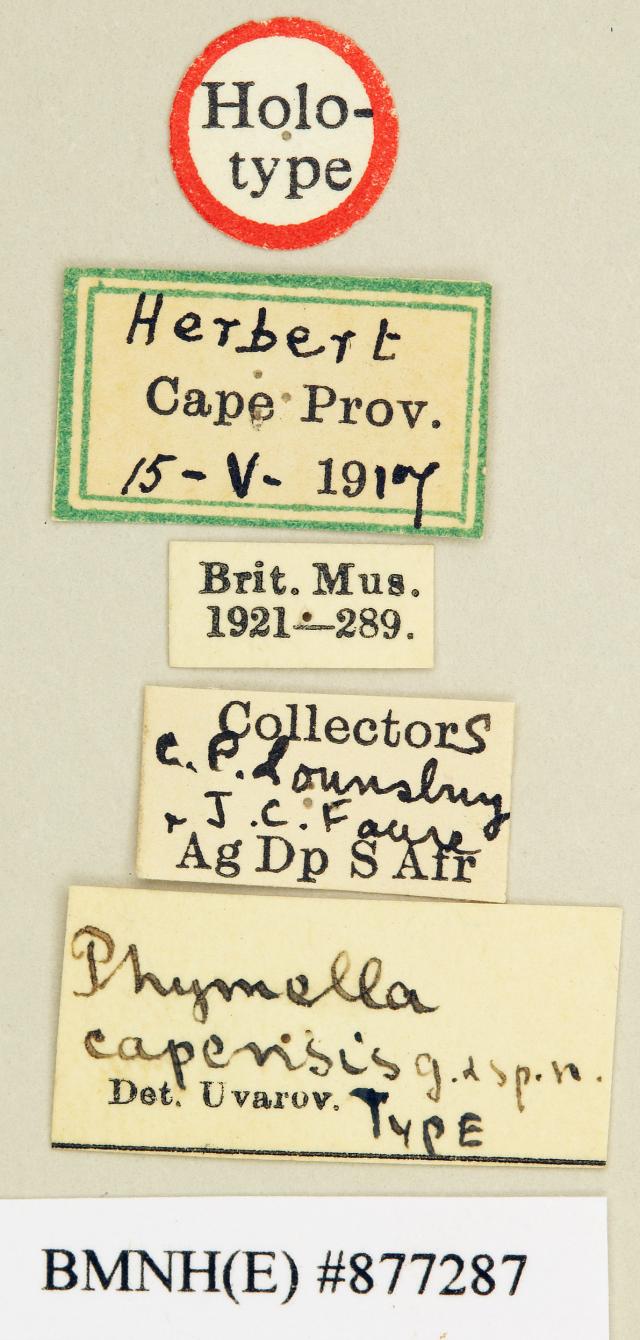 Holo-
type
Herbert
Cape Prov.
15-V-1917
Brit. Mus.
1921—289.
Collectors
C.P. Lounsbury
& J.C. Faure
Ag Dp S Afr
Phymella
capensis g. & sp. n.
Det. Uvarov. TYPE
BMNH(E) #877287